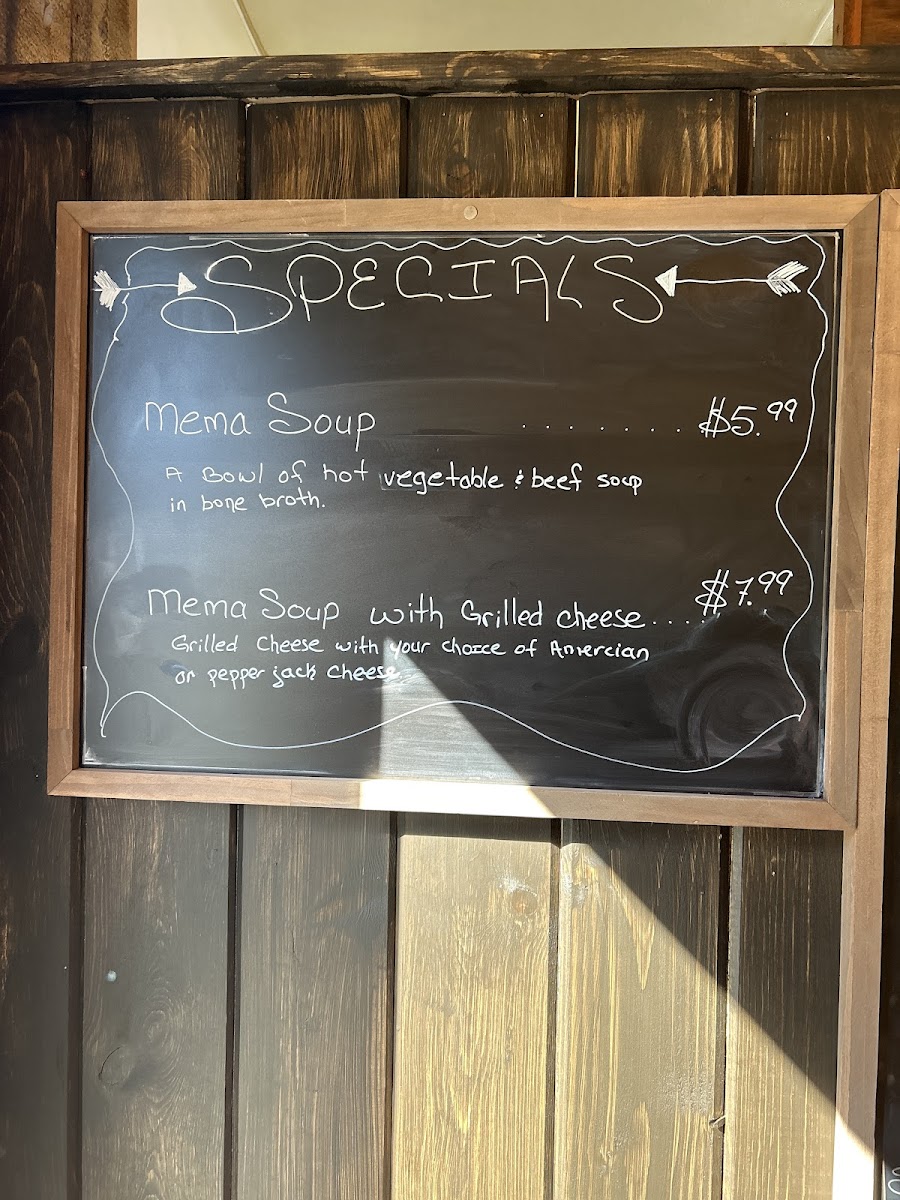 SPECIALS
Mema Soup ........ $5.99
A Bowl of hot vegetable & beef soup
in bone broth.
Mema Soup with Grilled cheese...... $7.99
Grilled Cheese with your choice of Amercian
or pepper jack cheese.